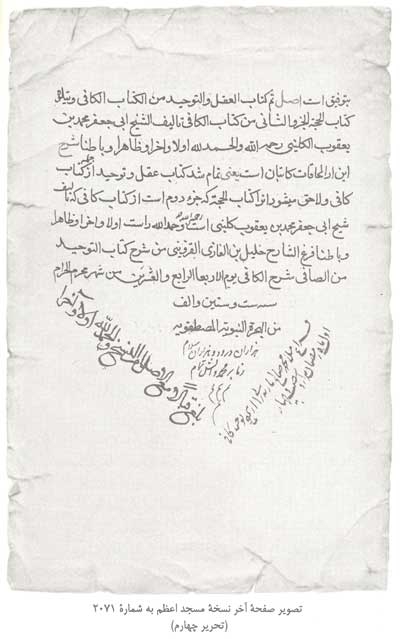 بتوفیق است اصل تم کتاب العقل والتوحید من الکتاب الکافی ویتلوه
کتاب الحجة الجزو الثانی من کتاب الکافی تالیف الشیخ ابی جعفر محمد بن
یعقوب الکلینی رحمه الله والحمد لله اولا واخرا وظاهرا وباطنا شرح
این از الحاقات کاتبان است یعنی تمام شد کتاب عقل و توحید از کتاب
کافی ولاحق میشود او را کتاب الحجة که جزء دوم است از کتاب کافی تالیف
شیخ ابی جعفر محمد بن یعقوب کلینی است رحمه الله وحمد الله راست اولا واخرا وظاهرا
وباطنا فرغ الشارح خلیل بن الغازی القزوینی من شرح کتاب التوحید
من الصافی شرح الکافی یوم الاربعا الرابع والعشرین من شهر محرم الحرام
سنه ست وستین والف
من الهجرة النبویة المصطفویه
هزاران درود و هزاران سلام
ز ما بر محمد و آلش تمام
تصویر صفحهٔ آخر نسخهٔ مسجد اعظم به شمارهٔ ۲۰۷۱
(تحریر چهارم)